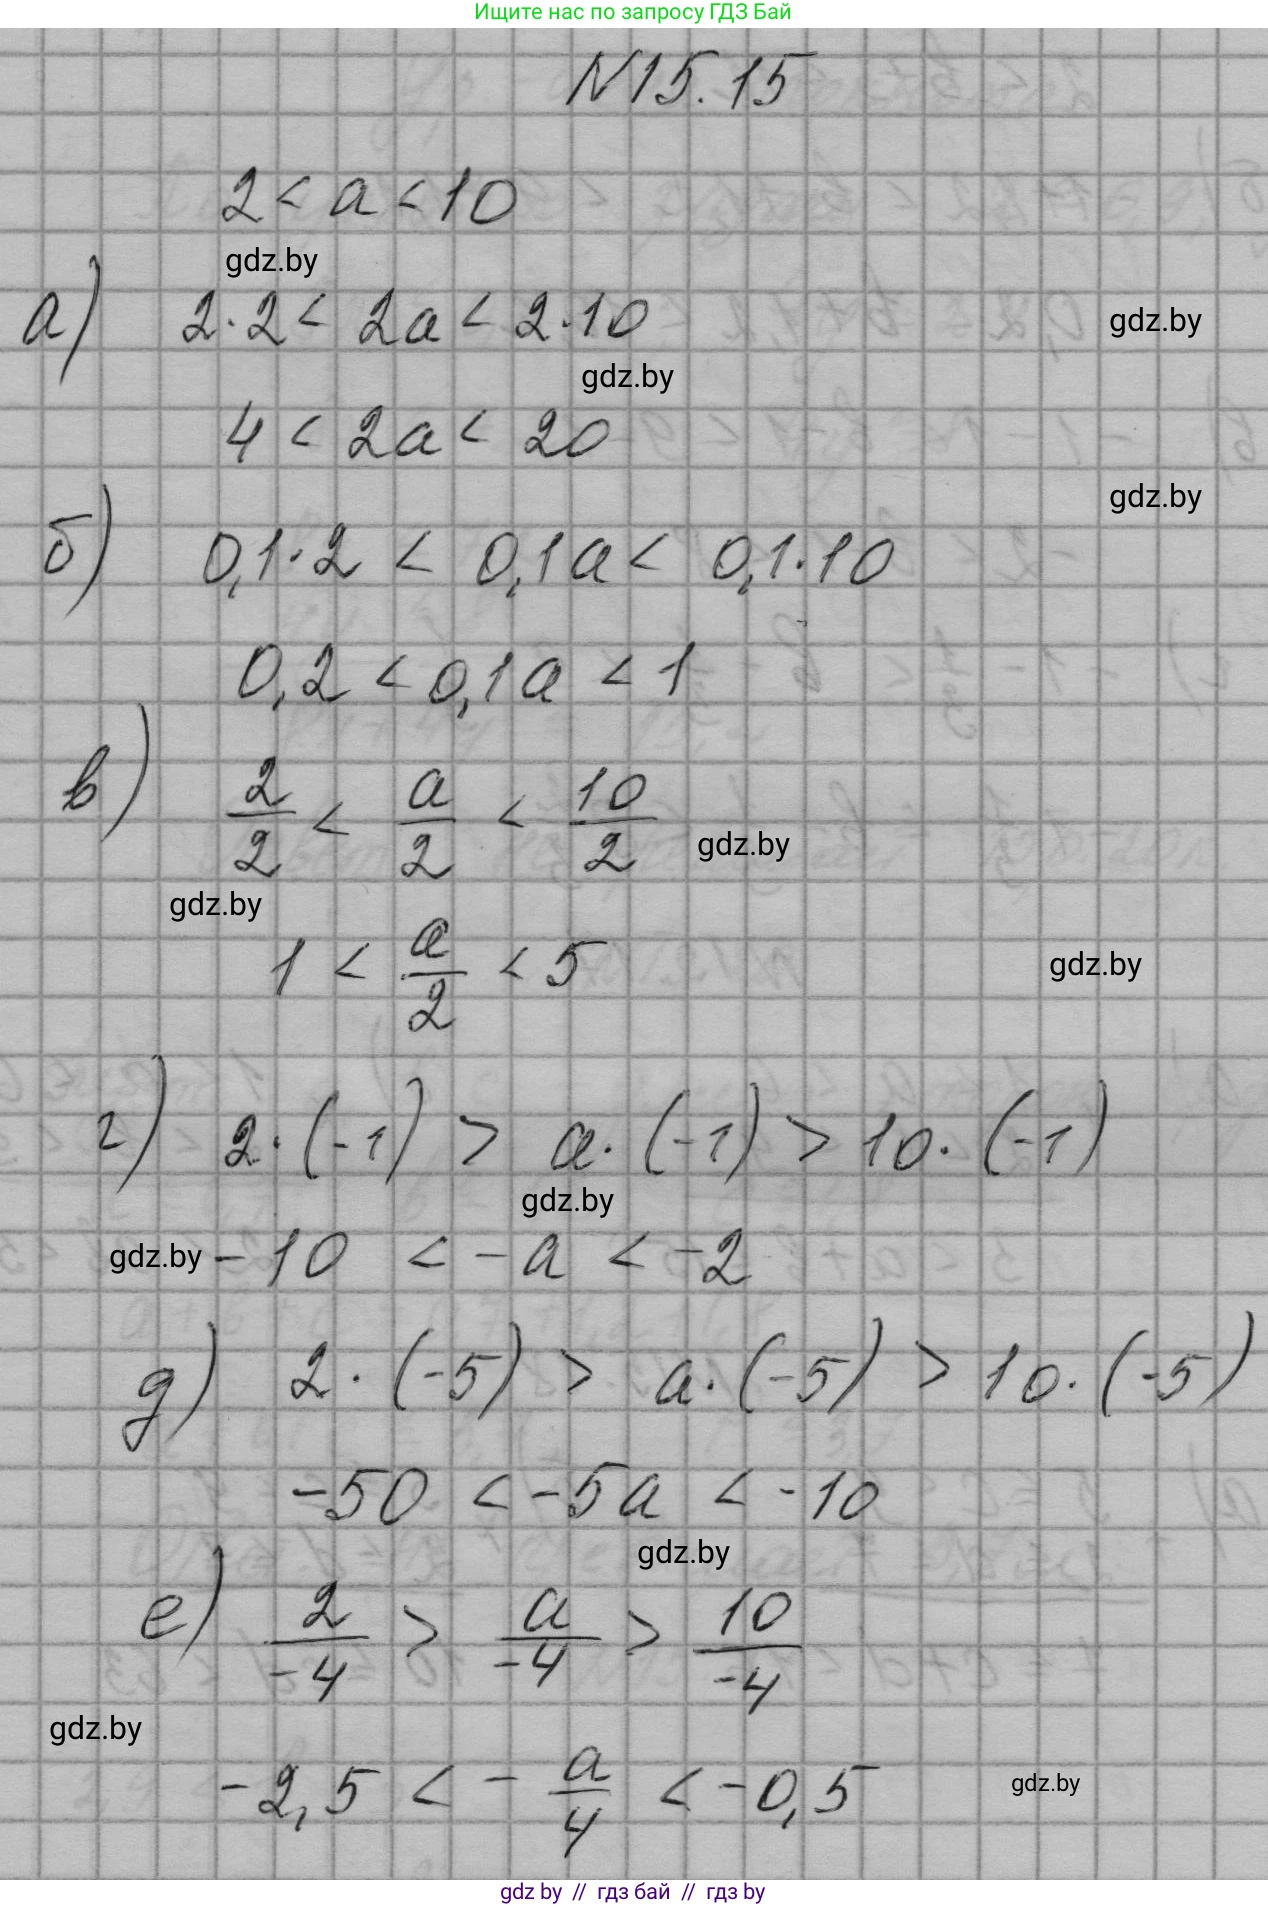 Ищите нас по запросу ГДЗ Бай
N15.15
2 < a < 10
gdz.by
а) 2·2 < 2a < 2·10
gdz.by
gdz.by
4 < 2a < 20
gdz.by
б) 0,1·2 < 0,1a < 0,1·10
0,2 < 0,1a < 1
в) 2/2 < a/2 < 10/2
gdz.by
gdz.by
1 < a/2 < 5
gdz.by
г) 2·(-1) > a·(-1) > 10·(-1)
gdz.by
gdz.by
-10 < -a < -2
д) 2·(-5) > a·(-5) > 10·(-5)
-50 < -5a < -10
gdz.by
е) 2/-4 > a/-4 > 10/-4
gdz.by
-2,5 < -a/4 < -0,5
gdz.by
gdz by // гдз бай // гдз by